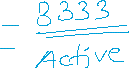 = 8333
Active